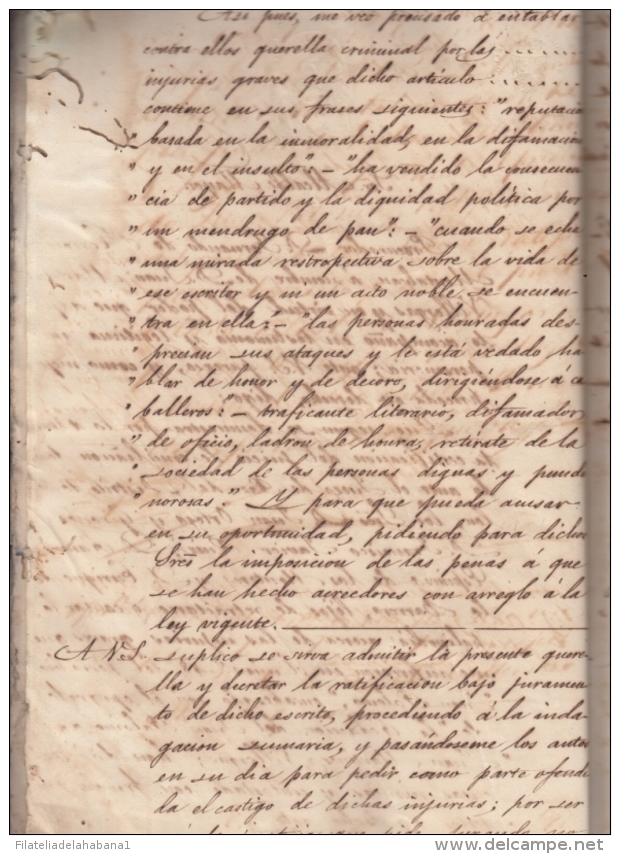 Asi pues, me veo precisado á entablar
contra ellos querella criminal por las
injurias graves que dicho artículo
contiene en sus frases siguientes: "reputacio
" basada en la inmoralidad, en la difamacion
" y en el insulto": - "ha vendido la consecuen
" cia de partido y la dignidad política por
" un mendrugo de pan": - "cuando se eche
" una mirada restropectiva sobre la vida de
" ese escritor y ni un acto noble se encuen-
" tra en ella": - "las personas honradas des-
" precian sus ataques y le está vedado ha
" blar de honor y de decoro, dirigiéndose á ca
" balleros": - traficante literario, difamador
" de oficio, ladron de honra, retirate de la
" sociedad de las personas dignas y pundo
" norosas." Y para que pueda acusar
en su oportunidad, pidiendo para dichos
Sres la imposicion de las penas á que
se han hecho acreedores con arreglo á la
ley vigente.
A V.S. suplico se sirva admitir la presente quere-
lla y decretar la ratificacion bajo juramen
to de dicho escrito, procediendo á la inda-
gacion sumaria, y pasándoseme los autos
en su dia para pedir como parte ofendi
da el castigo de dichas injurias; por ser
Filateliadelahabana1
delcampe.net